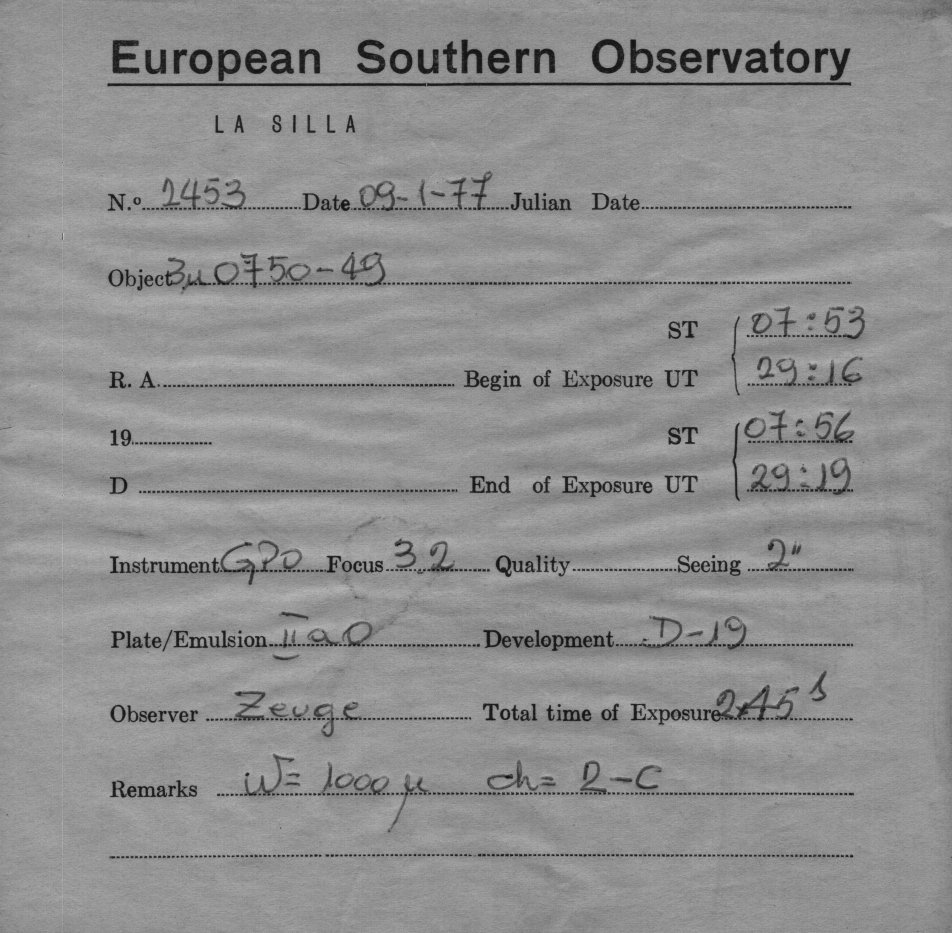 European Southern Observatory
LA SILLA
N.º 2453 Date 09-1-77 Julian Date
Object 3u 0750-49
ST 07:53
R. A. Begin of Exposure UT 29:16
19 ST 07:56
D End of Exposure UT 29:19
Instrument GPO Focus 3.2 Quality Seeing 2"
Plate/Emulsion IIaO Development D-19
Observer Zeuge Total time of Exposure 2x45s
Remarks W= 1000µ ch= 2-C